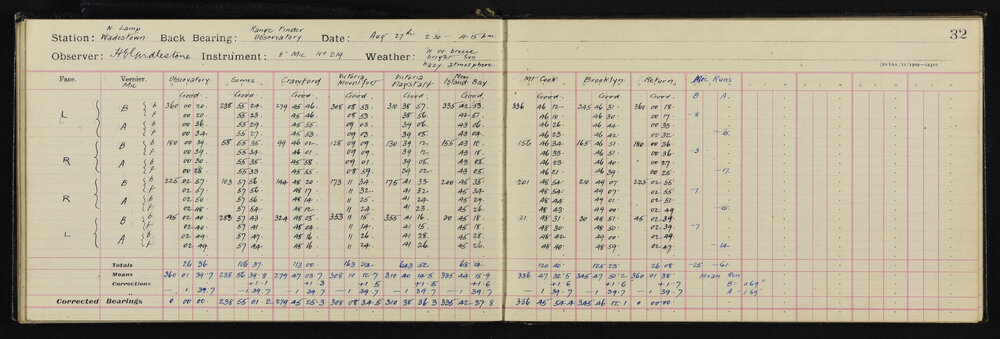 N. Lamp Range Finder
Station: Wadestown Back Bearing: Observatory Date: Aug 27th 2.30 — 4.15 pm 32
N.W. breeze
Observer: Instrument: 8" Mic No 219 Weather: bright Sun
hazy atmosphere
Face. Vernier. Mic Observatory Somes Crawford Victoria Mount fort Victoria Flagstaff New Island Bay Mt Cook Brooklyn Return Mic Runs
Good. Good. Good. Good. Good. Good. Good. Good. Good. B A.
L B b 360 00 20. 238 55 24. 279 45 46. 308 08 53. 310 38 57. 335 42 53. 336 46 12. 345 46 31. 360 00 18.
f 00 20. 55 23. 45 46 08 53. 38 56. 42 51. 46 10. 46 30. 00 17. -8
A b 00 36. 55 29. 45 55. 09 03. 39 06. 43 06. 46 26. 46 44. 00 33.
f 00 34. 55 27. 45 53. 09 03. 39 05. 43 04. 46 23. 46 42. 00 32. -15.
R B b 180 00 39. 58 55 35. 99 46 02. 128 09 09. 130 39 12. 155 43 18. 156 46 34. 165 46 51. 180 00 36.
f 00 39. 55 34. 46 01. 09 09. 39 12. 43 18. 46 33. 46 51. 00 36. -3
A b 00 30. 55 35. 45 58. 09 01. 39 05. 43 05. 46 23. 46 40. 00 27.
f 00 28. 55 33. 45 55. 08 59. 39 02. 43 05. 46 21. 46 39. 00 25. -17.
R B b 225 02 57. 103 57 56. 144 48 20. 173 11 34. 175 41 33. 200 45 35. 201 48 54. 210 49 07. 225 02 55.
f 02 57. 57 56. 48 17. 11 32. 41 32. 45 34. 48 54. 49 07. 02 55. -7
A b 02 50. 57 56. 48 14. 11 25. 41 24. 45 29. 48 44. 49 01. 02 51.
f 02 48. 57 54. 48 12. 11 24. 41 23. 45 26. 48 43. 49 00. 02 49. -15.
L B b 45 02 40. 283 57 43. 324 48 05. 353 11 15. 355 41 16. 20 45 18. 21 48 31. 30 48 51. 45 02 39.
f 02 40. 57 41. 48 04. 11 14. 41 15. 45 18. 48 30. 48 50. 02 39. -7
A b 02 49. 57 47. 48 16. 11 26. 41 28. 45 28. 48 42. 49 00. 02 49.
f 02 49. 57 44. 48 16. 11 24. 41 26. 45 26. 48 40. 48 59. 02 47. -14.
Totals 26 36 106 37. 113 00. 163 643 52. 68 14. 120 40. 125 23. 26 08. -25 -61.
Means 360 01 39.7 238 56 39.8 279 47 03.7 308 10 12.7 310 40 14.5 335 44 15.9 336 47 32.5 345 47 50.2 360 01 38. Mean Run
Corrections +1.1 +1.3 +1.5 +1.5 +1.6 +1.6 +1.6 +1.7 B = 0.69"
— 1 39.7 — 1 39.7 — 1 39.7 — 1 39.7 — 1 39.7 — 1 39.7 — 1 39.7 — 1 39.7 — 1 39.7 A = 1.69"
Corrected Bearings 0 00 00. 238 55 01.2 279 45 25.3 308 08 34.5 310 38 36.3 335 42 37.8 336 45 54.4 345 46 12.1 0 00 00.